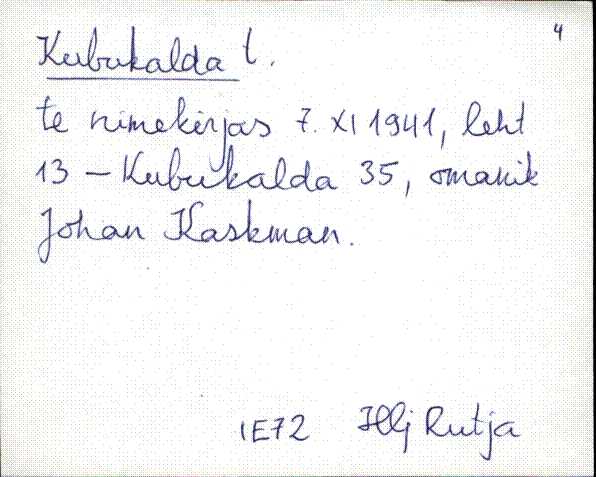 4
Kubukalda t.
te nimekirjas 7. XI 1941, leht
13 – Kubukalda 35, omanik
Johan Kaskman.
IE72 Hlj Rutja